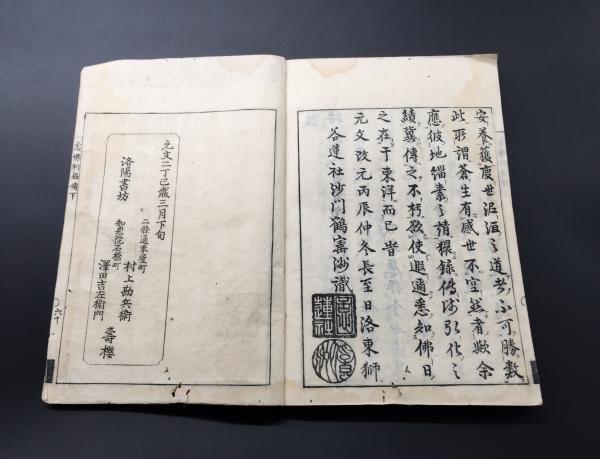 安養獲度世泥洹之道者不可勝數
此所謂蒼生有感世不空然者歟余
應彼地緇素之請猥錄件済引化之
績冀傳之不朽欲使遐邇悉知佛日
之在于東洋而已旹
元文改元丙辰仲冬長至日洛東獅
谷蓮社沙門鶴寳洲識
元文二丁巳歳三月下旬
二條通東屋町
洛陽書坊 村上勘兵衛
知恩院石橋町
澤田吉左衛門
壽櫻
念佛利益傳下
六十